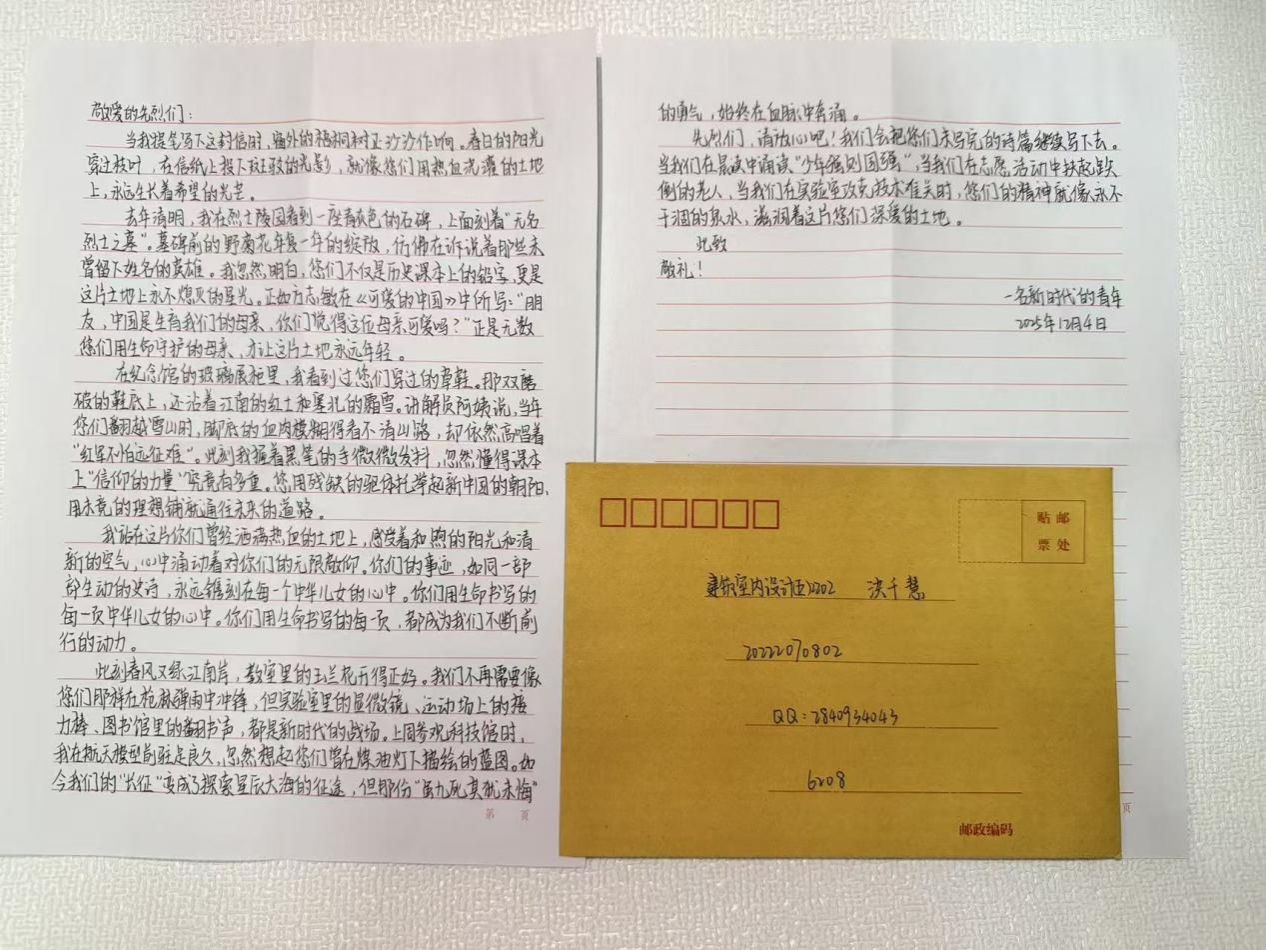 敬爱的先烈们：
当我提笔写下这封信时，窗外的梧桐树正沙沙作响。春日的阳光
穿过枝叶，在信纸上投下斑驳的光影，就像您们用热血浇灌的土地
上，永远生长着希望的光芒。
去年清明，我在烈士陵园看到一座青灰色的石碑，上面刻着“无名
烈士之墓”。墓碑前的野菊花年复一年的绽放，仿佛在诉说着那些未
曾留下姓名的英雄。我忽然明白，您们不仅是历史课本上的铅字，更是
这片土地上永不熄灭的星光。正如方志敏在《可爱的中国》中所写：“朋
友，中国是生育我们的母亲，你们觉得这位母亲可爱吗？”正是无数
您们用生命守护的母亲、才让这片土地永远年轻。
在纪念馆的玻璃展柜里，我看到过您们穿过的草鞋。那双磨
破的鞋底上，还沾着江南的红土和塞北的霜雪。讲解员阿姨说，当年
您们翻越雪山时，脚底的血肉模糊得看不清山路，却依然高唱着
“红军不怕远征难”。此刻我握着黑笔的手微微发抖，忽然懂得课本
上“信仰的力量”究竟有多重。您用残缺的躯体托举起新中国的朝阳，
用未竟的理想铺就通往未来的道路。
我站在这片你们曾经洒满热血的土地上，感受着和煦的阳光和清
新的空气，心中涌动着对你们的无限敬仰。你们的事迹，如同一部
部生动的史诗，永远镌刻在每一个中华儿女的心中。你们用生命书写的
每一页中华儿女的心中。你们用生命书写的每一页，都成为我们不断前
行的动力。
此刻春风又绿江南岸，教室里的玉兰花开得正好。我们不再需要像
您们那样在枪林弹雨中冲锋，但实验室里的显微镜、运动场上的接
力棒、图书馆里的翻书声，都是新时代的战场。上周参观科技馆时，
我在航天模型前驻足良久，忽然想起您们曾在煤油灯下描绘的蓝图。如
今我们的“长征”变成了探索星辰大海的征途，但那份“虽九死其犹未悔”
第 页
的勇气，始终在血脉中奔涌。
先烈们，请放心吧！我们会把您们未写完的诗篇继续写下去。
当我们在晨读中诵读“少年强则国强”，当我们在志愿活动中扶起跌
倒的老人，当我们在实验室攻克技术难关时，您们的精神就像永不
干涸的泉水，滋润着这片您们深爱的土地。
此致
敬礼！
一名新时代的青年
2025年12月4日
贴邮
票处
建筑室内设计2202 洪千慧
20222070802
QQ：2840934043
6208
邮政编码
页